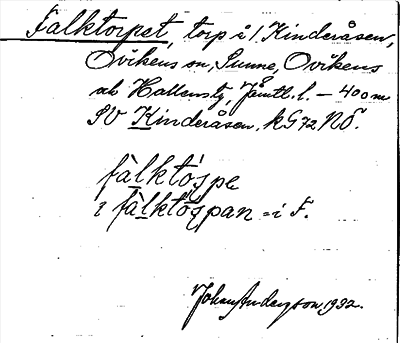 Falktorpet, torp å 1 Kinderåsen,
Ovikens sn, Sunne, Ovikens
o. Hallens tg, Jämtl. l. – 400 m
SV Kinderåsen. kG 72 NÖ.
fàlktóspe
i fàlktóspan = i F.
Johan Anderson 1932.